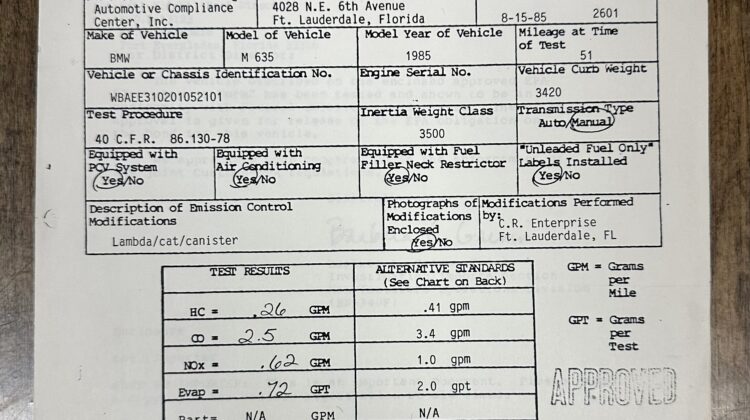 Automotive Compliance
Center, Inc.
4028 N.E. 6th Avenue
Ft. Lauderdale, Florida
8-15-85
2601
Make of Vehicle
BMW
Model of Vehicle
M 635
Model Year of Vehicle
1985
Mileage at Time
of Test
51
Vehicle or Chassis Identification No.
WBAEE310201052101
Engine Serial No.
Vehicle Curb Weight
3420
Test Procedure
40 C.F.R. 86.130-78
Inertia Weight Class
3500
Transmission Type
Auto/Manual
Equipped with
PCV System
Yes/No
Equipped with
Air Conditioning
Yes/No
Equipped with Fuel
Filler Neck Restrictor
Yes/No
"Unleaded Fuel Only"
Labels Installed
Yes/No
Description of Emission Control
Modifications
Lambda/cat/canister
Photographs of
Modifications
Enclosed
Yes/No
Modifications Performed
by:
C.R. Enterprise
Ft. Lauderdale, FL
TEST RESULTS
ALTERNATIVE STANDARDS
(See Chart on Back)
HC = .26 GPM
.41 gpm
CO = 2.5 GPM
3.4 gpm
NOx = .62 GPM
1.0 gpm
Evap = .72 GPT
2.0 gpt
Part= N/A GPM
N/A
GPM = Grams
per
Mile
GPT = Grams
per
Test
APPROVED